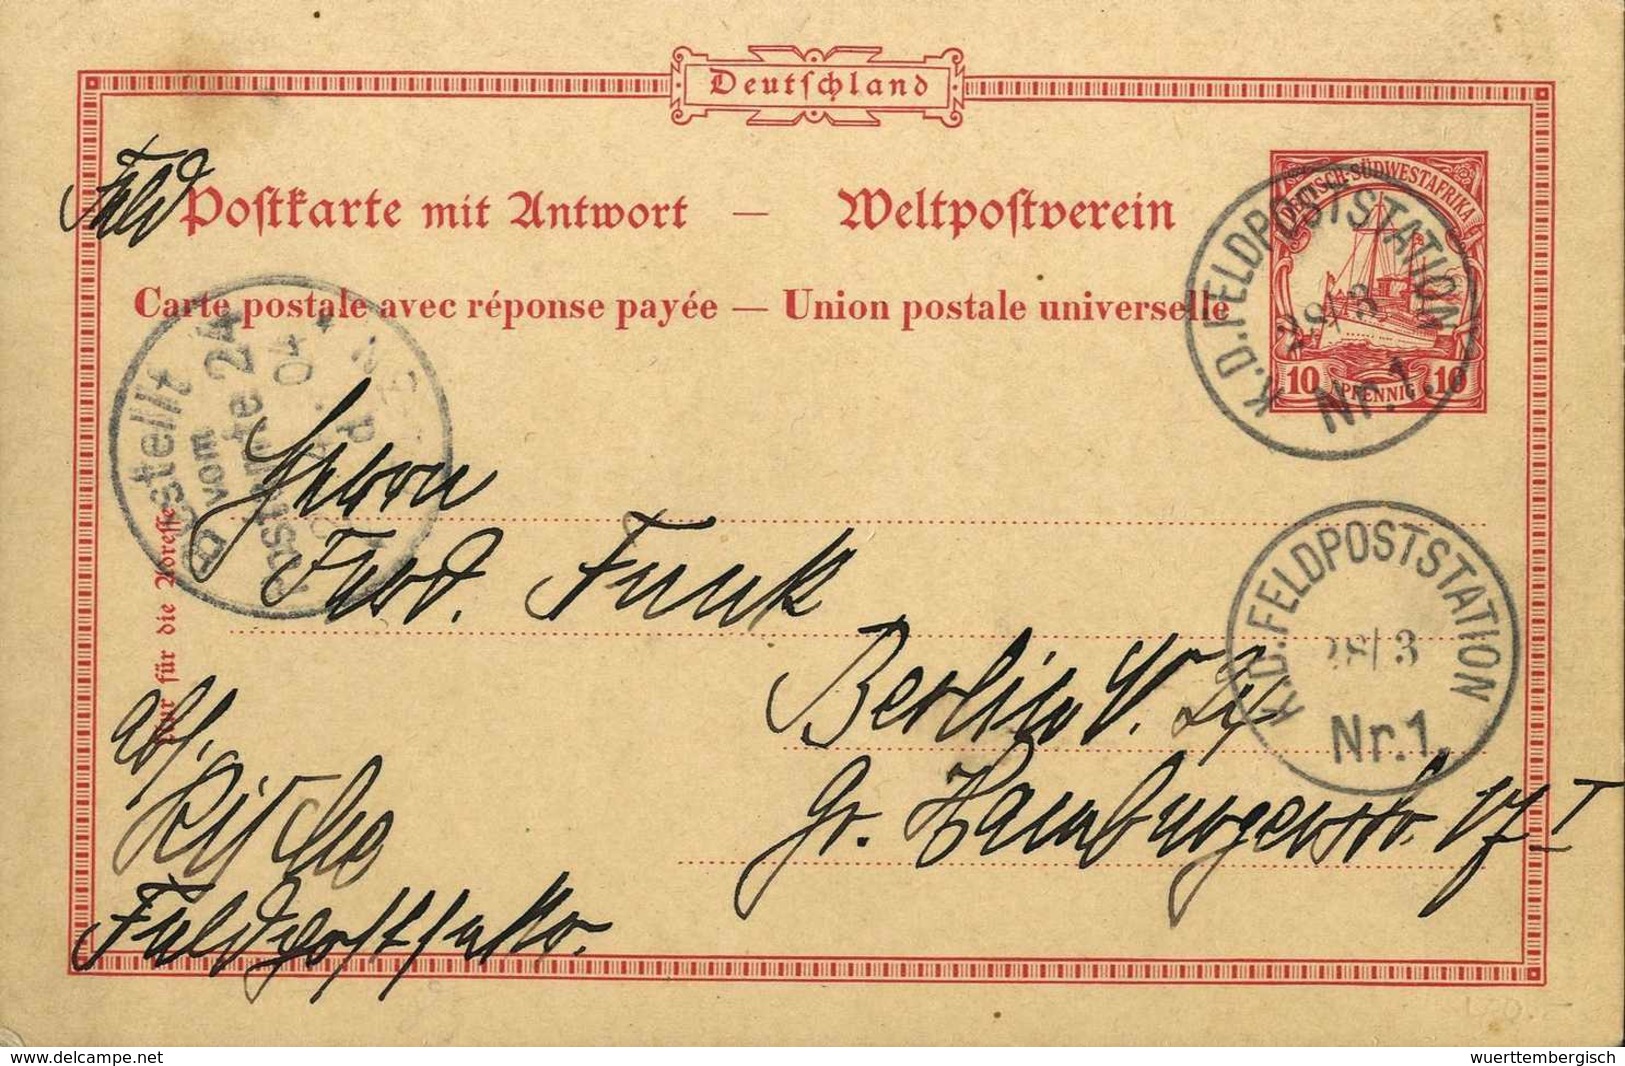 Deutschland
Feld
Postkarte mit Antwort — Weltpostverein
Carte postale avec réponse payée — Union postale universelle
DEUTSCH-SÜDWESTAFRIKA
10 PFENNIG 10
K.D.FELDPOSTSTATION
28/3
Nr.1.
Bestellt
vom
Postamte 24
04
Herrn
Ferd. Funk
Berlin N. 24
Gr. Hamburgerstr. 17 I
K.D.FELDPOSTSTATION
28/3
Nr.1.
Nur für die Adresse
Abs.
Feldpostsekr.
delcampe.net
wuerttembergisch